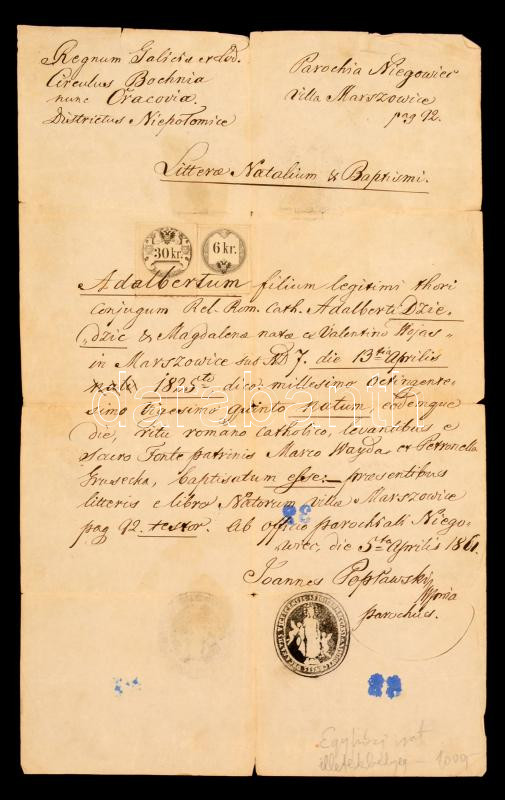 Regnum Galiciæ et Lod.
Circulus Bochnia
nunc Cracovia.
Districtus Niepołomice
Parochia Niegowiec
Villa Marszowice
pag 92.
Litteræ Natalium & Baptismi.
30 kr.
6 kr.
Adalbertum filium legitimi thori
Conjugum Rel. Rom. Cath. Adalberti Dzie-
dzic & Magdalenæ natæ e Valentino Wojas
in Marszowice sub ND 7. die 13tia Aprilis
1825to dico: millesimo octingente-
simo vigesimo quinto natum eodemque
die, ritu romano catholico, levantibus e
sacro Fonte patrinis Marco Wayda et Petronella
baptisatum esse: præsentibus
litteris e libro Natorum Villa Marszowice
pag 92. testor. Ab officio parochiali Niego-
wiec, die 5ta Aprilis 1861.
Joannes Popławski
parochus.
38
Egyházi
illetékbélyeg – 1000
darabanth.com